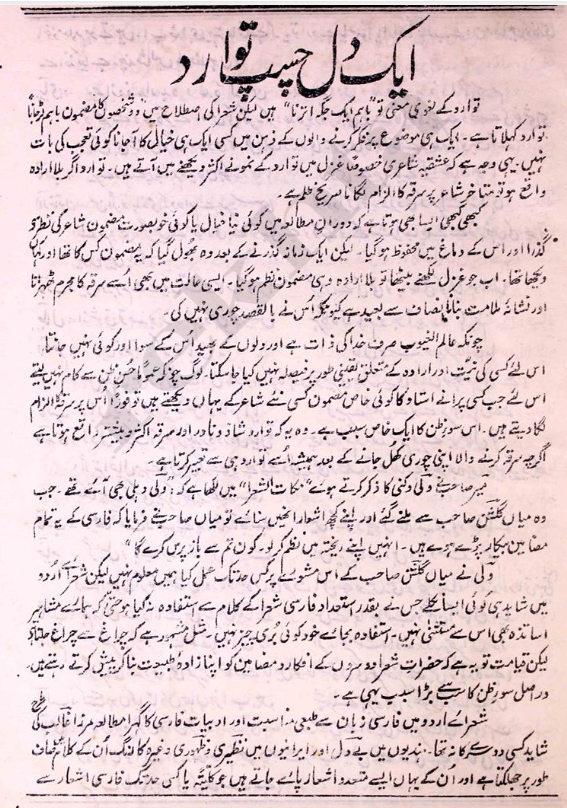 ایک دل چسپ توارد
توارد کے لغوی معنی تو "باہم ایک جگہ اترنا" ہیں لیکن شعرا کی اصطلاح میں دو شخصوں کا مضمون باہم لڑجانا
توارد کہلاتا ہے۔ ایک ہی موضوع پر فکر کرنے والوں کے ذہن میں کسی ایک ہی خیال کا آجانا کوئی تعجب کی بات
نہیں۔ یہی وجہ ہے کہ عشقیہ شاعری خصوصاً غزل میں توارد کے نمونے اکثر دیکھنے میں آتے ہیں۔ توارد اگر بلا ارادہ
واقع ہو تو متاخر شاعر پر سرقہ کا الزام لگانا صریح ظلم ہے۔
کبھی کبھی ایسا بھی ہوتا ہے کہ دوران مطالعہ میں کوئی نیا خیال یا کوئی خوبصورت مضمون شاعر کی نظر سے
گذرا اور اس کے دماغ میں محفوظ ہوگیا۔ لیکن ایک زمانہ گذرنے کے بعد وہ بھول گیا کہ یہ مضمون کس کا تھا اور کہاں
دیکھا تھا۔ اب جو غزل لکھنے بیٹھا تو بلا ارادہ وہی مضمون نظم ہوگیا۔ ایسی حالت میں بھی اُسے سرقہ کا مجرم ٹھہرانا
اور نشانۂ ملامت بنانا انصاف سے بعید ہے کیونکہ اُس نے بالقصد چوری نہیں کی۔
چونکہ عالم الغیوب صرف خدا کی ذات ہے اور دلوں کے بھید اُس کے سوا اور کوئی نہیں جانتا
اس لئے کسی کی نیت اور ارادہ کے متعلق یقینی طور پر فیصلہ نہیں کیا جاسکتا۔ لوگ چونکہ عموماً حسن ظن سے کام نہیں لیتے
اس لئے جب کسی پرانے استاد کا کوئی خاص مضمون کسی نئے شاعر کے یہاں دیکھتے ہیں تو فوراً اُس پر سرقہ کا الزام
لگا دیتے ہیں۔ اس سوء ظن کا ایک خاص سبب ہے۔ وہ یہ کہ توارد شاذ و نادر اور سرقہ اکثر و بیشتر واقع ہوتا ہے
اگرچہ سرقہ کرنے والا اپنی چوری کھُل جانے کے بعد ہمیشہ اُسے توارد ہی سے تعبیر کرتا ہے۔
میر صاحب نے ولی دکنی کا ذکر کرتے ہوئے "نکات الشعرا" میں لکھا ہے کہ:" ولی دہلی بھی آئے تھے۔ جب
وہ میاں گلشن صاحب سے ملنے گئے اور اپنے کچھ اشعار انھیں سنائے تو میاں صاحب نے فرمایا کہ فارسی کے یہ تمام
مضامین بیکار پڑے ہوئے ہیں۔ انہیں اپنے ریختہ میں نظم کرلو۔ کون تم سے باز پرس کرے گا"
ولی نے میاں گلشن صاحب کے اس مشورے پر کس حد تک عمل کیا ہمیں معلوم نہیں لیکن شعرائے اُردو
میں شاید ہی کوئی ایسا نکلے جس نے بقدر استعداد فارسی شعرا کے کلام سے استفادہ نہ کیا ہو حتیٰ کہ ہمارے مشاہیر
اساتذہ بھی اس سے مستثنیٰ نہیں۔ استفادہ بجائے خود کوئی بُری چیز نہیں۔ مثل مشہور ہے کہ چراغ سے چراغ جلتا ہے
لیکن قیامت تو یہ ہے کہ حضرات شعرا دوسروں کے افکار و مضامین کو اپنا زادۂ طبیعت بنا کر پیش کرتے رہتے ہیں۔
دراصل سوء ظن کا سب سے بڑا سبب یہی ہے۔
شعرائے اردو میں فارسی زبان سے طبعی مناسبت اور ادبیات فارسی کا گہرا مطالعہ مرزا غالب کی طرح
شاید کسی دوسرے کا نہ تھا۔ ہندیوں میں بے دل اور ایرانیوں میں نظیری و ظہوری وغیرہ کا رنگ اُن کے کلام میں صاف
طور پر جھلکتا ہے اور اُن کے یہاں ایسے متعدد اشعار پائے جاتے ہیں جو کلیتہ یا کسی حد تک فارسی اشعار سے